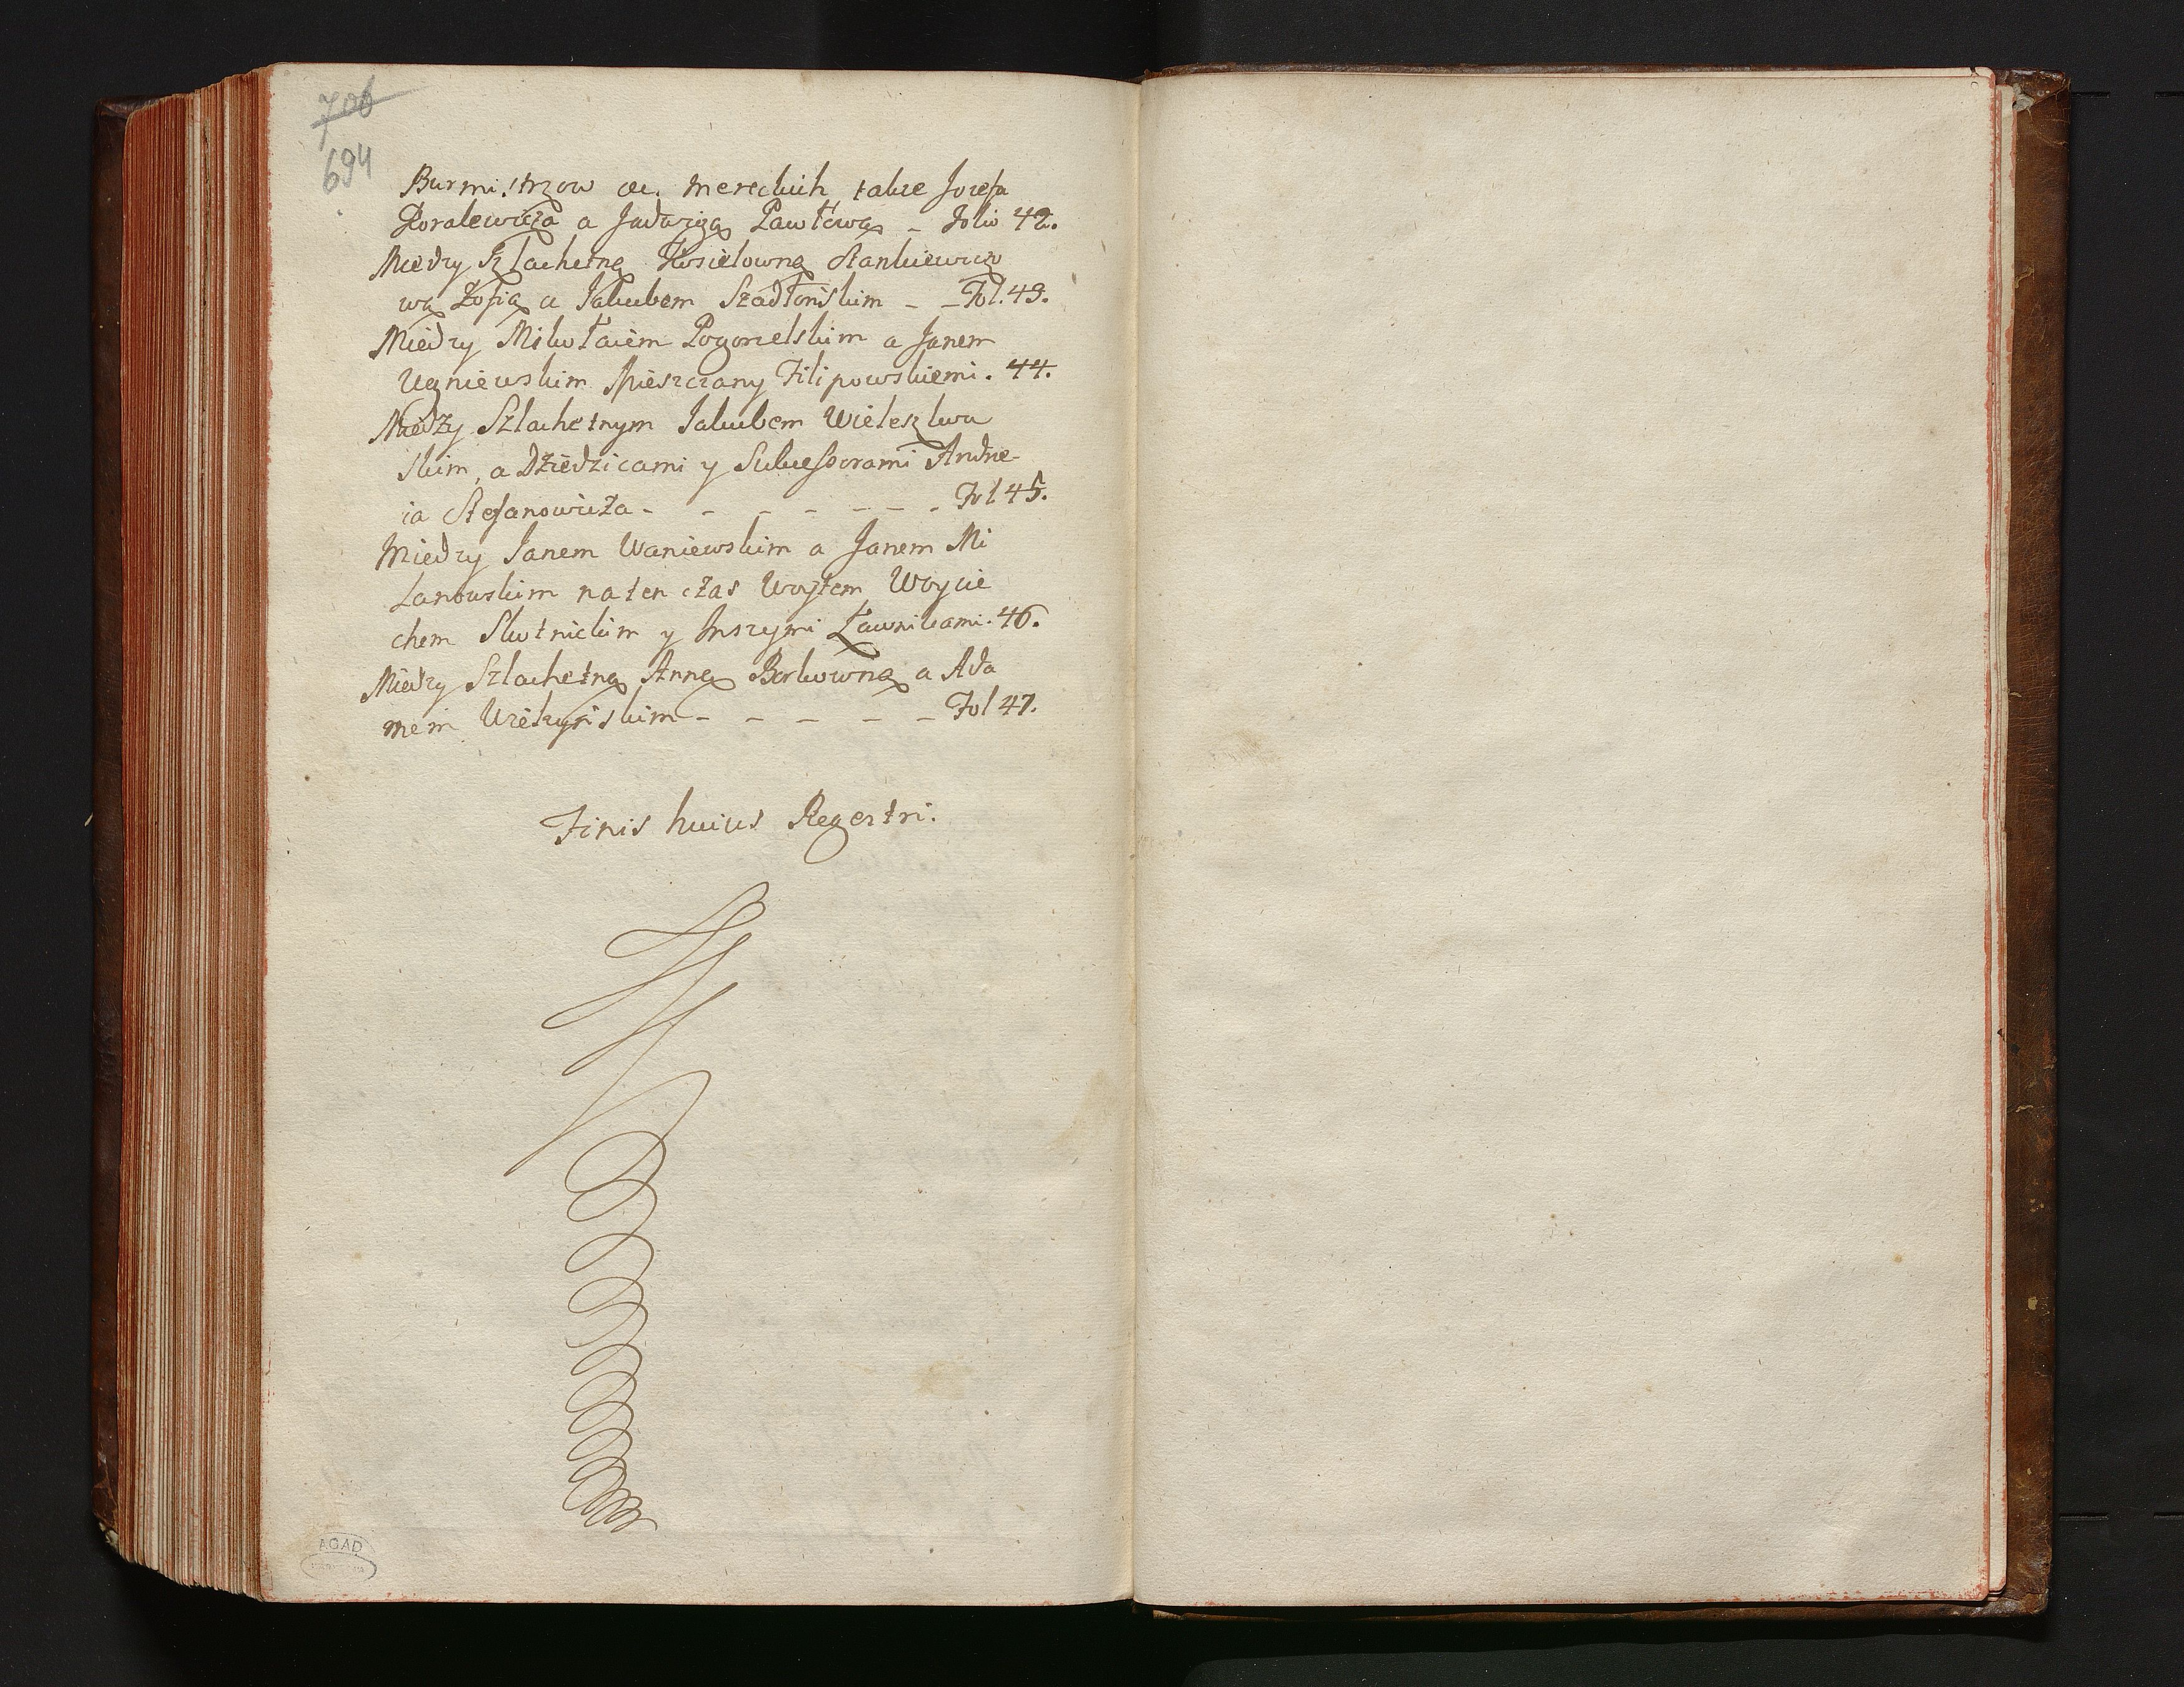 706
694
Burmistrzow etc. Mereckich także Jozefa
Goralewicza a Jadwigą Pawłową - Folio 42.
Miedzy Szlachetną Kosiełowną Stankiewiczo
wą Zofią a Jakubem Szadłonskim - - Fol. 43.
Miedzy Mikołaiem Pogorzelskim a Janem
Węgniewskim Mieszczany Filipowskiemi. 44.
Miedzy Szlachetnym Jakubem
skim, a Dziedzicami y Sukcessorami Andrze
ia Stefanowicza - - - - - - - Fol 45.
Miedzy Janem Waniewskim a Janem Mi
lanowskim na ten czas Woytem, Woycie
chem Skotnickim y Inszymi Ławnikami. 46.
Miedzy Szlachetną Anną Borkowną a Ada
mem - - - - - Fol 47.
Finis huius Regestri.
AGAD